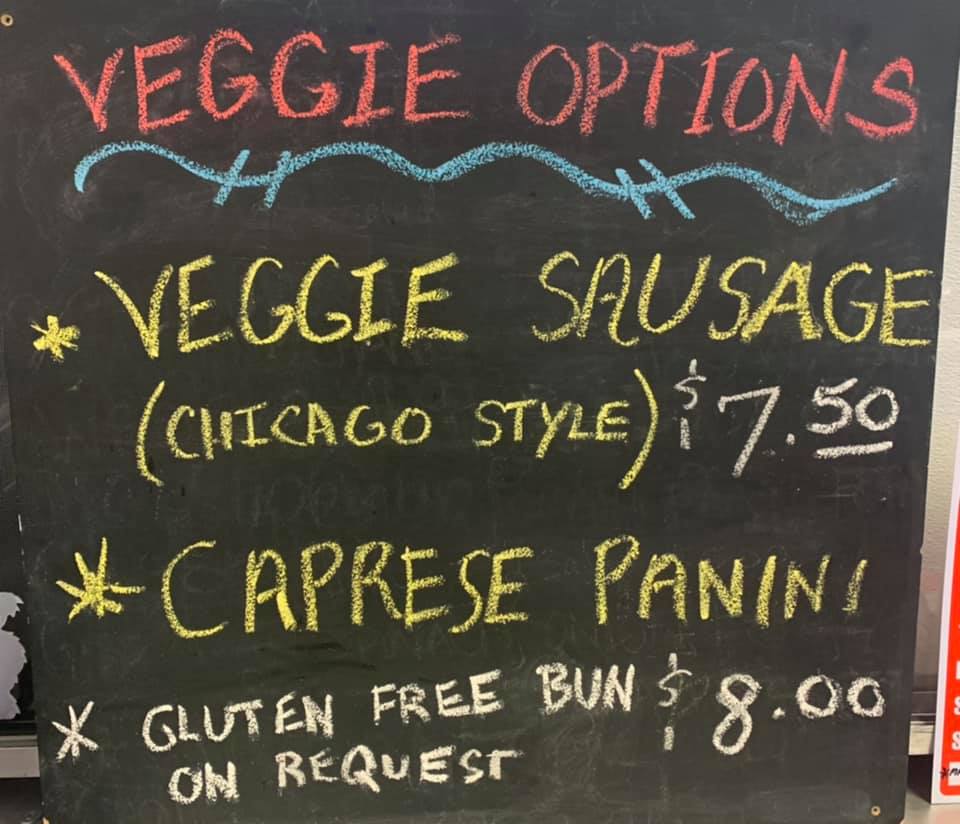 VEGGIE OPTIONS
* VEGGIE SAUSAGE
(CHICAGO STYLE) $7.50
* CAPRESE PANINI
* GLUTEN FREE BUN $8.00
ON REQUEST